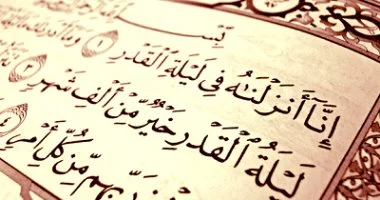 بِسْـ
إِنَّآ أَنزَلْنَٰهُ فِى لَيْلَةِ ٱلْقَدْرِ ١ وَمَآ أَدْ
لَيْلَةُ ٱلْقَدْرِ خَيْرٌ مِّنْ أَلْفِ شَهْرٍ
بِّهِم مِّن كُلِّ أَمْرٍ ٤